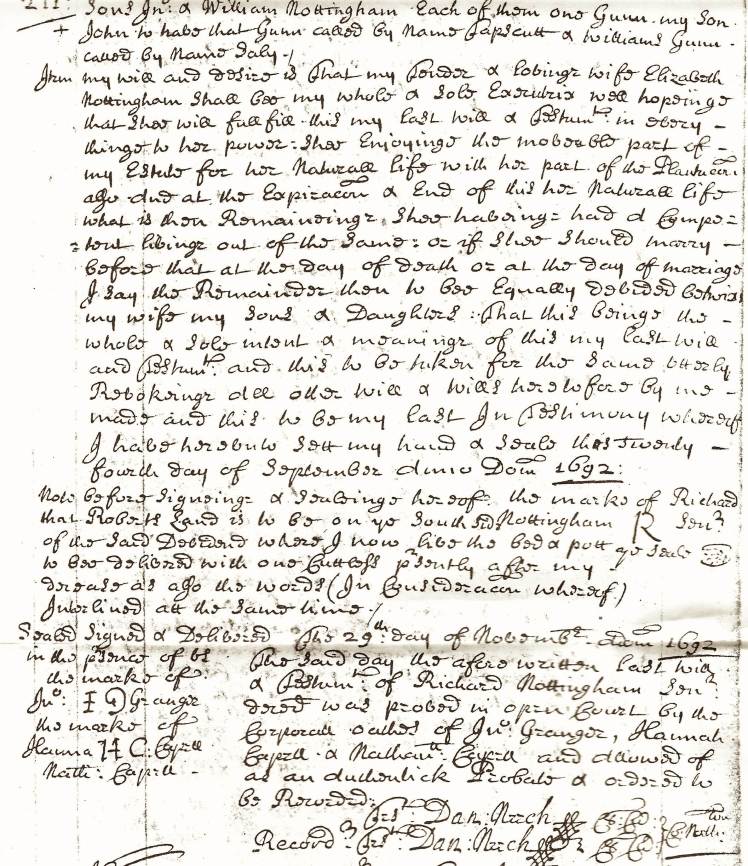 Sons Jno: & William Nottingham Each of them one Gunn my Son
John to have that Gunn called by Name Papscutt & Williams Gunn
called by Name Saly
Item my will and desire is That my Tender & lovinge wife Elizabeth
Nottingham Shall bee my whole & Sole Executrix well hopeinge
that Shee will fullfill this my last will & Testamt: in every
thinge to her power: Shee Enjoyinge the moveable part of
my Estate for her Naturall life with her part of the Plantacon:
also and at the Expiracon & End of this her Naturall life
what is then Remaineinge, Shee haveing had a Compe=
=tent livinge out of the Same: or if Shee Should marry
before that at the day of death or at the day of marriage
I say the Remainder then to bee Equally devided betwixt
my wife my Sons & Daughters: That this beinge the
whole & Sole intent & meaninge of this my last will
and Testamt: and this to be taken for the Same utterly
Revokeinge all other will & wills heretofore by me
made and this to be my last In Testimony whereoff
I have hereunto Sett my hand & Seale this Twenty
fourth day of September Anno Dom 1692:
Note before Signeinge & Sealeinge hereof: the marke of Richard
that Roberts Land is to be on ye South Sd Nottingham R Senr
of the Said Devidend where I now live the bed & pott ye Seale
to bee delivered with one Cuttless prsently after my
decease as also the words (In Consideracon whereof)
Interlined att the Same time
Sealed Signed & Delivered The 29th: day of Novembr: Adom 1692
in the prsence of us The Said day the afore written last will
the marke of & Testamt: of Richard Nottingham Senr
Jno: I G Granger dered was proved in open Court by the
the marke of Corporall oathes of Jno: Granger, Hannah
Hanna H C: Capell Capell & Nathanll: Capell and allowed of
Nath: Capell as an Authentick Probate & ordered to
be Recorded:
Test: Dan: Neech
Record: Test: Dan: Neech